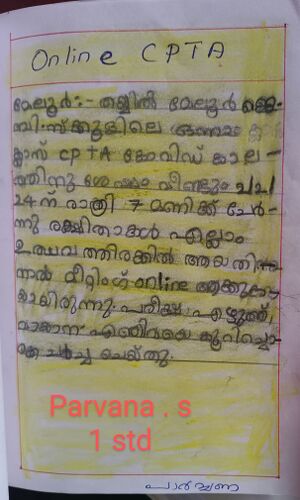 Online CPTA
വേലൂർ:- തയ്യിൽ വേലൂർ ജെ-
ഒന്നാം
ക്ലാസ് CPTA കോവിഡ് കാല-
ത്തിനു ശേഷം വീണ്ടും
24 ന് രാത്രി 7 മണിക്ക് ചേർ-
ന്നു രക്ഷിതാക്കൾ എല്ലാം
ഉത്സവത്തിരക്കിൽ ആയതി-
നാൽ മീറ്റിംഗ് online ആക്കുക-
യായിരുന്നു. പരീക്ഷ, എഴുത്ത്,
വായന എന്നിവയെ കുറിച്ചൊ-
ക്കെ ചർച്ച ചെയ്തു.
Parvana . s
1 std
പാർവ്വണ